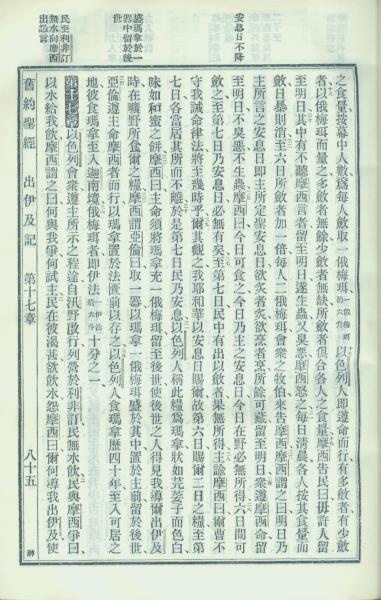 安息日不降
盛瑪拿於一
器中留於後
世
民至利非訂
無水向摩西
出怨言
之食量按幕中人數爲每人斂取一俄梅珥一俄梅珥約六升以色列人卽遵命而行有多斂者有少斂
者以俄梅珥而量之多斂者無餘少斂者無缺所斂者俱合各人之食量摩西告民曰毋許人留
至明日其中有不聽摩西言者留至明日遂生蟲又臭惡摩西怒之每日清晨各人按其食量而
斂日暴則消至六日所斂者加一倍每人二俄梅珥會衆之牧伯來告摩西摩西謂之曰明日乃
主所言之安息日卽主所定聖安息日欲炙者炙欲烹者烹所餘可藏留至明日衆遵摩西命留
至明日不臭惡不生蟲摩西曰今日可食之今日乃主之安息日今日在野必無所得六日間可
斂之至第七日乃安息日必無有矣至第七日民中有出以斂者果無所得主諭摩西曰爾曹不
守我誡命律法將至幾時乎爾其觀之我耶和華以安息日賜爾故第六日賜爾二日之糧至第
七日各當居其所而不離於是第七日民乃安息以色列人稱此糧爲瑪拿狀如芫荽子而色白
味如和蜜之餅摩西曰主命須將瑪拿充一俄梅珥留至後世使後世之人得見我導爾出伊及
時在曠野所食爾之糧摩西謂亞倫曰取一器以瑪拿一俄梅珥盛於其中置於主前留於後世
亞倫遵主命摩西者而行以瑪拿置於法匱前以存之以色列人食瑪拿歷四十年至入可居之
地彼食瑪拿至入迦南境俄梅珥者卽伊法一伊法約六斗十分之一
第十七章以色列會衆遵主所示之程途自汛野啟行列營於利非訂民無水飲民與摩西爭曰
以水給我飲摩西謂之曰何與我爭何試主民在彼渴甚欲飲水怨摩西曰爾何導我出伊及使
舊約聖經 出伊及記 第十七章 八十五